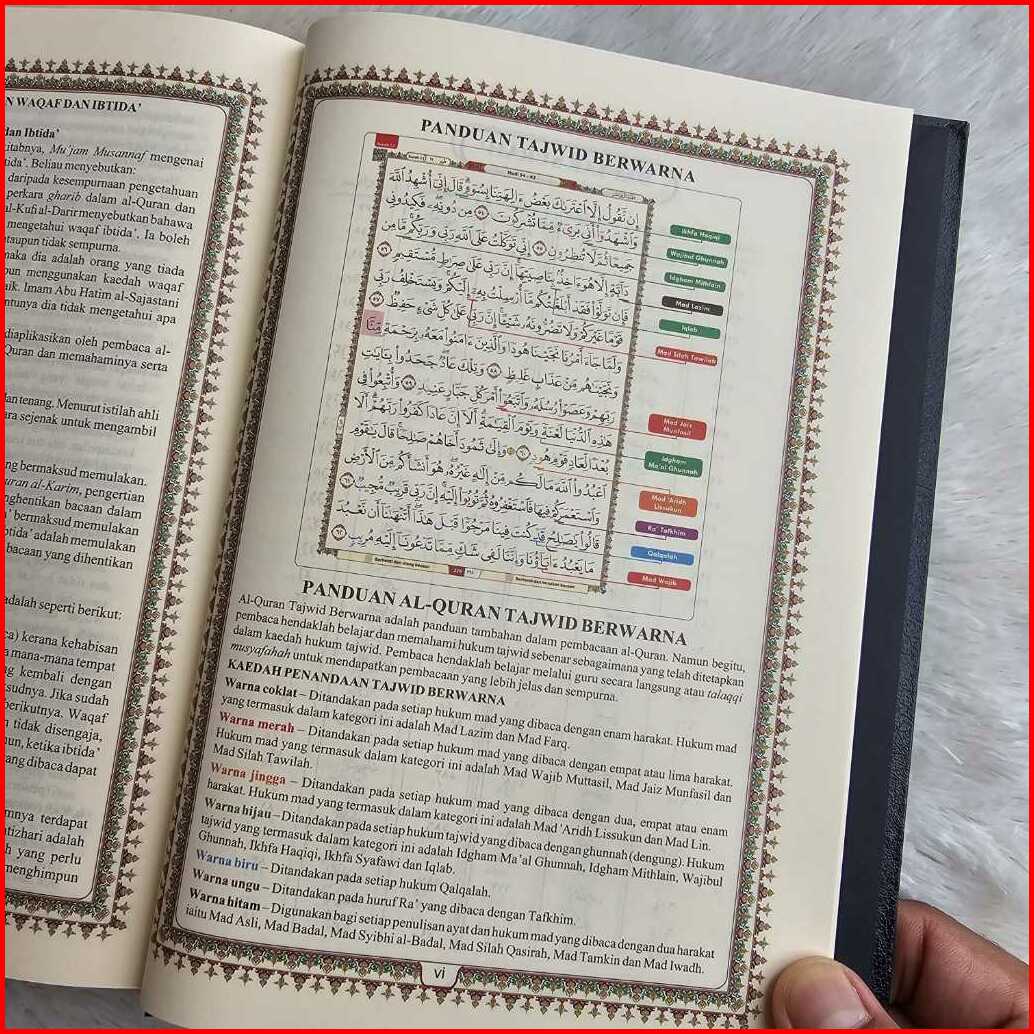 N WAQAF DAN IBTIDA'
dan Ibtida'
kitabnya, Mu'jam Musannaf mengenai
tida'. Beliau menyebutkan:
daripada kesempurnaan pengetahuan
perkara gharib dalam al-Quran dan
al-Kufi al-Darir menyebutkan bahawa
mengetahui waqaf ibtida'. Ia boleh
ataupun tidak sempurna.
maka dia adalah orang yang tiada
pun menggunakan kaedah waqaf
aik. Imam Abu Hatim al-Sajastani
ntunya dia tidak mengetahui apa
diaplikasikan oleh pembaca al-
Quran dan memahaminya serta
dan tenang. Menurut istilah ahli
ara sejenak untuk mengambil
ng bermaksud memulakan.
uran al-Karim, pengertian
nghentikan bacaan dalam
' bermaksud memulakan
btida' adalah memulakan
bacaan yang dihentikan
adalah seperti berikut:
ca) kerana kehabisan
a mana-mana tempat
g kembali dengan
sudnya. Jika sudah
berikutnya. Waqaf
n tidak disengaja,
un, ketika ibtida'
ang dibaca dapat
mnya terdapat
ntizhari adalah
h yang perlu
menghimpun
PANDUAN TAJWID BERWARNA
إِن نَّقُولُ إِلَّا ٱعْتَرَىٰكَ بَعْضُ ءَالِهَتِنَا بِسُوٓءٍ قَالَ إِنِّيٓ أُشْهِدُ ٱللَّهَ
وَٱشْهَدُوٓا۟ أَنِّي بَرِيٓءٌ مِّمَّا تُشْرِكُونَ ٥٤ مِن دُونِهِۦ فَكِيدُونِي
جَمِيعًا ثُمَّ لَا تُنظِرُونِ ٥٥ إِنِّي تَوَكَّلْتُ عَلَى ٱللَّهِ رَبِّي وَرَبِّكُم مَّا مِن
دَآبَّةٍ إِلَّا هُوَ ءَاخِذٌۢ بِنَاصِيَتِهَآ إِنَّ رَبِّي عَلَىٰ صِرَٰطٍ مُّسْتَقِيمٍ ٥٦
فَإِن تَوَلَّوْا۟ فَقَدْ أَبْلَغْتُكُم مَّآ أُرْسِلْتُ بِهِۦٓ إِلَيْكُمْ وَيَسْتَخْلِفُ رَبِّي
قَوْمًا غَيْرَكُمْ وَلَا تَضُرُّونَهُۥ شَيْـًٔا إِنَّ رَبِّي عَلَىٰ كُلِّ شَيْءٍ حَفِيظٌ ٥٧
وَلَمَّا جَآءَ أَمْرُنَا نَجَّيْنَا هُودًا وَٱلَّذِينَ ءَامَنُوا۟ مَعَهُۥ بِرَحْمَةٍ مِّنَّا
وَنَجَّيْنَٰهُم مِّنْ عَذَابٍ غَلِيظٍ ٥٨ وَتِلْكَ عَادٌ جَحَدُوا۟ بِـَٔايَٰتِ
رَبِّهِمْ وَعَصَوْا۟ رُسُلَهُۥ وَٱتَّبَعُوٓا۟ أَمْرَ كُلِّ جَبَّارٍ عَنِيدٍ ٥٩ وَأُتْبِعُوا۟ فِي
هَٰذِهِ ٱلدُّنْيَا لَعْنَةً وَيَوْمَ ٱلْقِيَٰمَةِ أَلَآ إِنَّ عَادًا كَفَرُوا۟ رَبَّهُمْ أَلَا
بُعْدًا لِّعَادٍ قَوْمِ هُودٍ ٦٠ وَإِلَىٰ ثَمُودَ أَخَاهُمْ صَٰلِحًا قَالَ يَٰقَوْمِ
ٱعْبُدُوا۟ ٱللَّهَ مَا لَكُم مِّنْ إِلَٰهٍ غَيْرُهُۥ هُوَ أَنشَأَكُم مِّنَ ٱلْأَرْضِ
وَٱسْتَعْمَرَكُمْ فِيهَا فَٱسْتَغْفِرُوهُ ثُمَّ تُوبُوٓا۟ إِلَيْهِ إِنَّ رَبِّي قَرِيبٌ مُّجِيبٌ ٦١
قَالُوا۟ يَٰصَٰلِحُ قَدْ كُنتَ فِينَا مَرْجُوًّا قَبْلَ هَٰذَآ أَتَنْهَىٰنَآ أَن نَّعْبُدَ
مَا يَعْبُدُ ءَابَآؤُنَا وَإِنَّنَا لَفِي شَكٍّ مِّمَّا تَدْعُونَآ إِلَيْهِ مُرِيبٍ ٦٢
Ikhfa Haqiqi
Wajibul Ghunnah
Idgham Mithlain
Mad Lazim
Iqlab
Mad Silah Tawilah
Mad Jaiz
Munfasil
Idgham
Ma'al Ghunnah
Mad 'Aridh
Lissukun
Ra' Tafkhim
Qalqalah
Mad Wajib
PANDUAN AL-QURAN TAJWID BERWARNA
Al-Quran Tajwid Berwarna adalah panduan tambahan dalam pembacaan al-Quran. Namun begitu,
pembaca hendaklah belajar dan memahami hukum tajwid sebenar sebagaimana yang telah ditetapkan
dalam kaedah hukum tajwid. Pembaca hendaklah belajar melalui guru secara langsung atau talaqqi
musyafahah untuk mendapatkan pembacaan yang lebih jelas dan sempurna.
KAEDAH PENANDAAN TAJWID BERWARNA
Warna coklat – Ditandakan pada setiap hukum mad yang dibaca dengan enam harakat. Hukum mad
yang termasuk dalam kategori ini adalah Mad Lazim dan Mad Farq.
Warna merah – Ditandakan pada setiap hukum mad yang dibaca dengan empat atau lima harakat.
Hukum mad yang termasuk dalam kategori ini adalah Mad Wajib Muttasil, Mad Jaiz Munfasil dan
Mad Silah Tawilah.
Warna jingga – Ditandakan pada setiap hukum mad yang dibaca dengan dua, empat atau enam
harakat. Hukum mad yang termasuk dalam kategori ini adalah Mad 'Aridh Lissukun dan Mad Lin.
Warna hijau – Ditandakan pada setiap hukum tajwid yang dibaca dengan ghunnah (dengung). Hukum
tajwid yang termasuk dalam kategori ini adalah Idgham Ma'al Ghunnah, Idgham Mithlain, Wajibul
Ghunnah, Ikhfa Haqiqi, Ikhfa Syafawi dan Iqlab.
Warna biru – Ditandakan pada setiap hukum Qalqalah.
Warna ungu – Ditandakan pada huruf Ra' yang dibaca dengan Tafkhim.
Warna hitam – Digunakan bagi setiap penulisan ayat dan hukum mad yang dibaca dengan dua harakat
iaitu Mad Asli, Mad Badal, Mad Syibhi al-Badal, Mad Silah Qasirah, Mad Tamkin dan Mad Iwadh.
vi